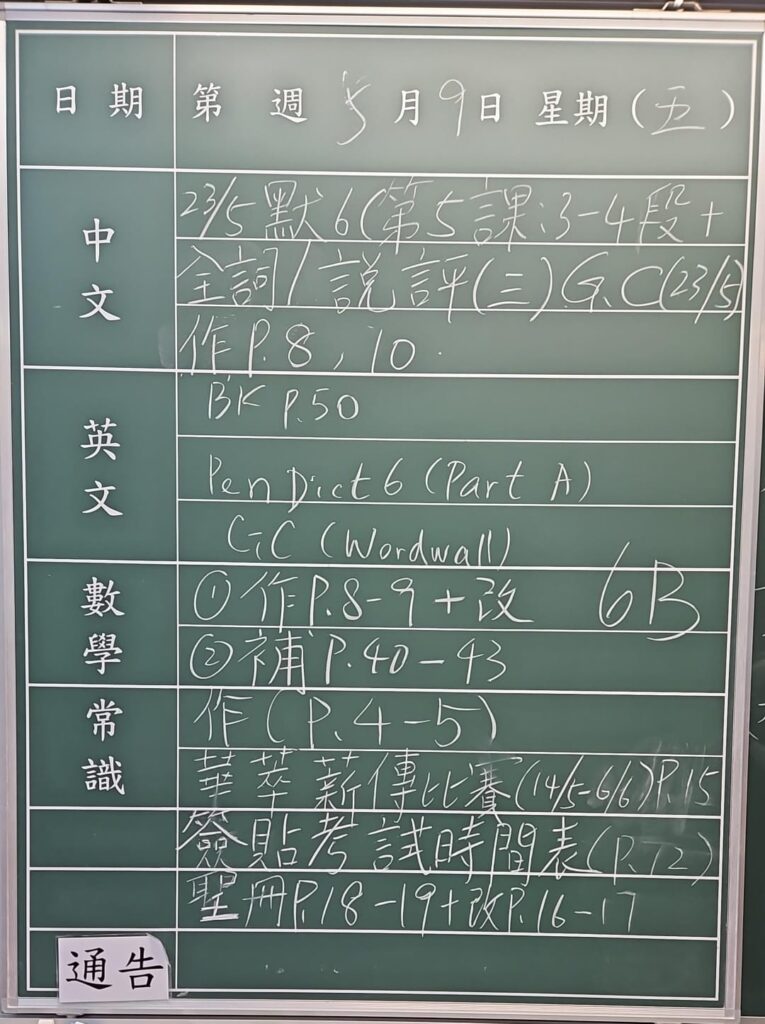 日期 第 週 5月9日 星期(五)
中文
23/5 默6(第5課:3-4段+
全詞/說評(三)G.C(23/5)
作P.8,10.
英文
BK P.50
Pen Dict 6 (Part A)
GC (Wordwall)
數學
①作P.8-9+改 6B
②補P.40-43
常識
作(P.4-5)
華萃薪傳比賽(14/5-6/6)P.15
簽貼考試時間表(P.12)
聖冊P.18-19+改P.16-17
通告